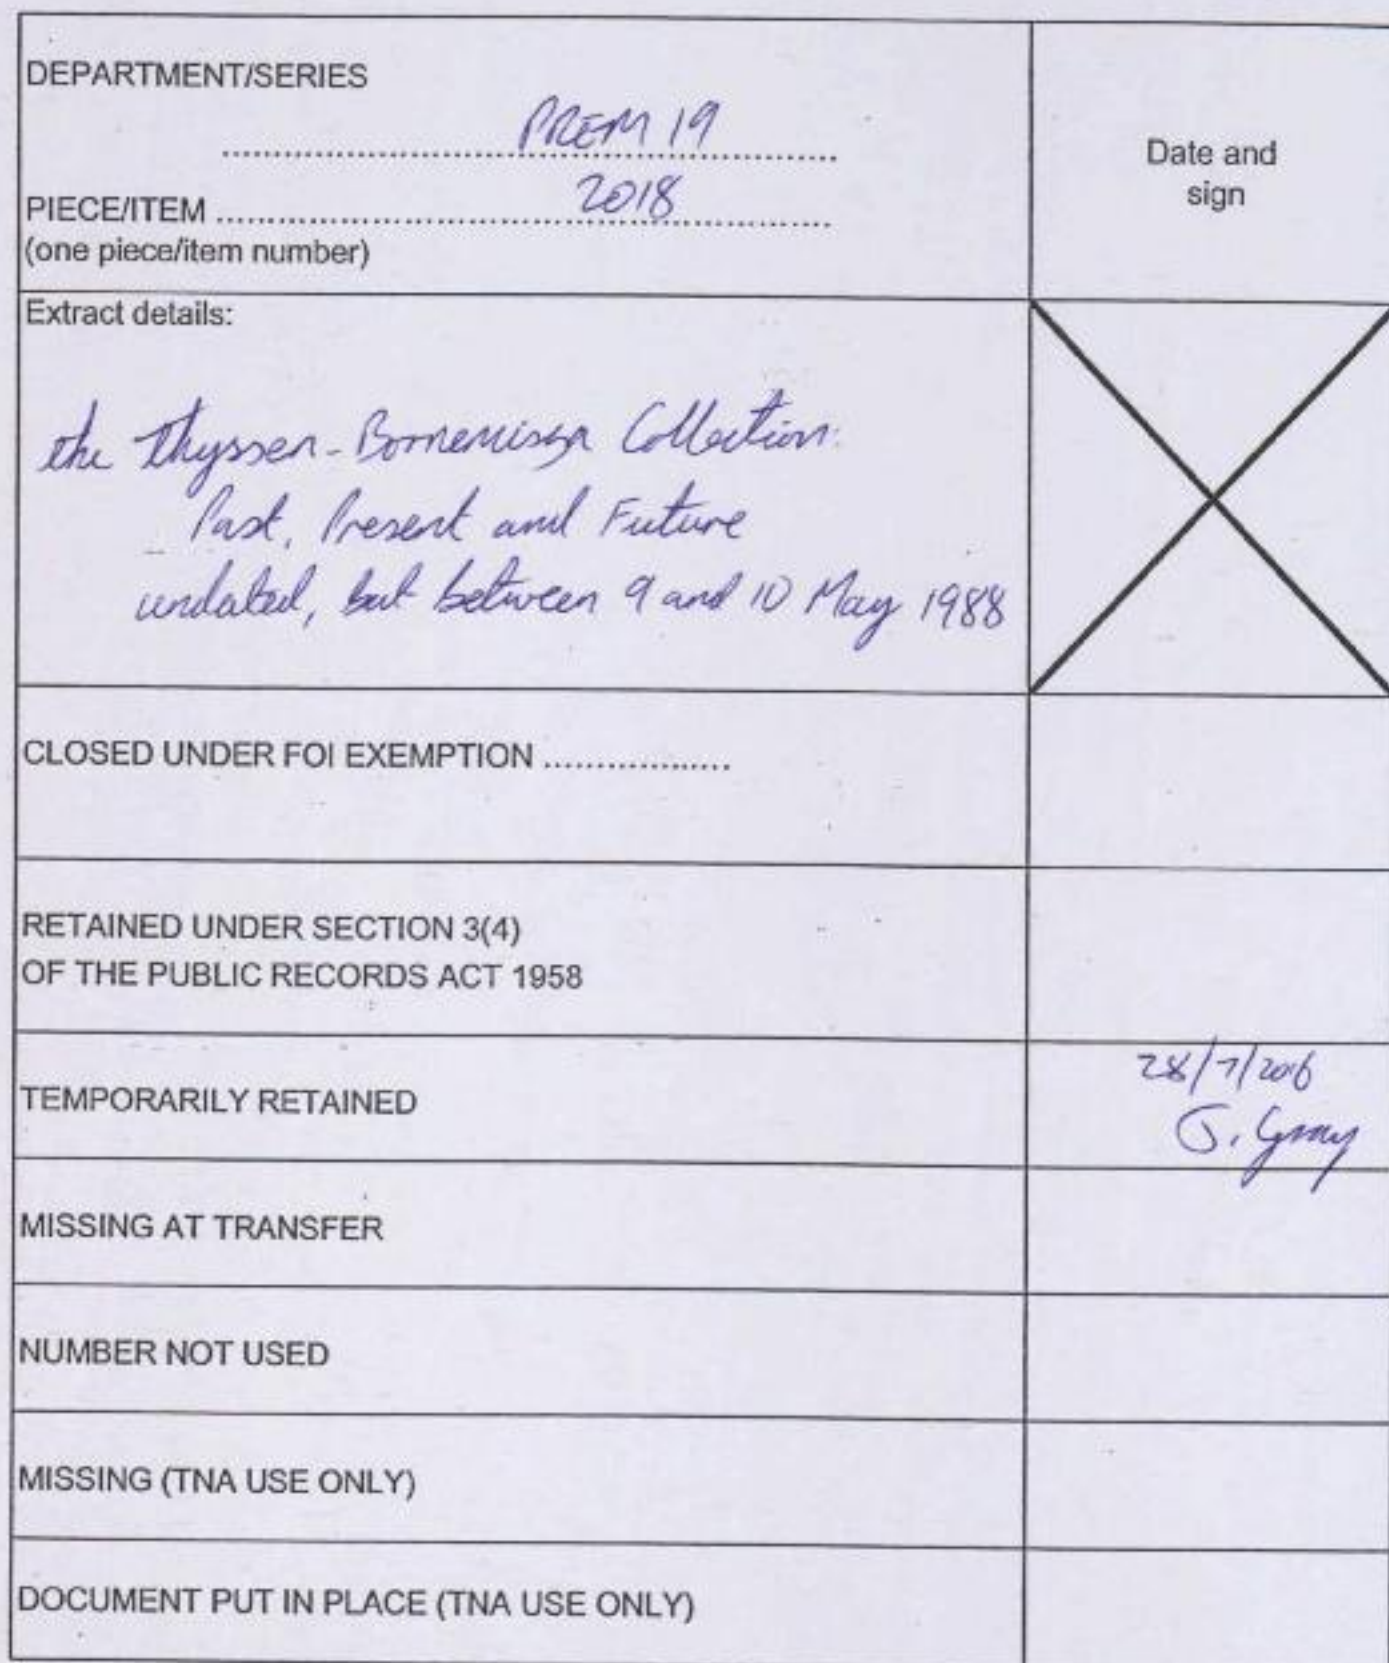 DEPARTMENT/SERIES
PREM 19
Date and
sign
PIECE/ITEM ................ 2018 ................
(one piece/item number)
Extract details:
the Thyssen-Bornemisza Collection:
Past, Present and Future
undated, but between 9 and 10 May 1988
CLOSED UNDER FOI EXEMPTION ..................
RETAINED UNDER SECTION 3(4)
OF THE PUBLIC RECORDS ACT 1958
TEMPORARILY RETAINED
28/7/2016
J. Gray
MISSING AT TRANSFER
NUMBER NOT USED
MISSING (TNA USE ONLY)
DOCUMENT PUT IN PLACE (TNA USE ONLY)